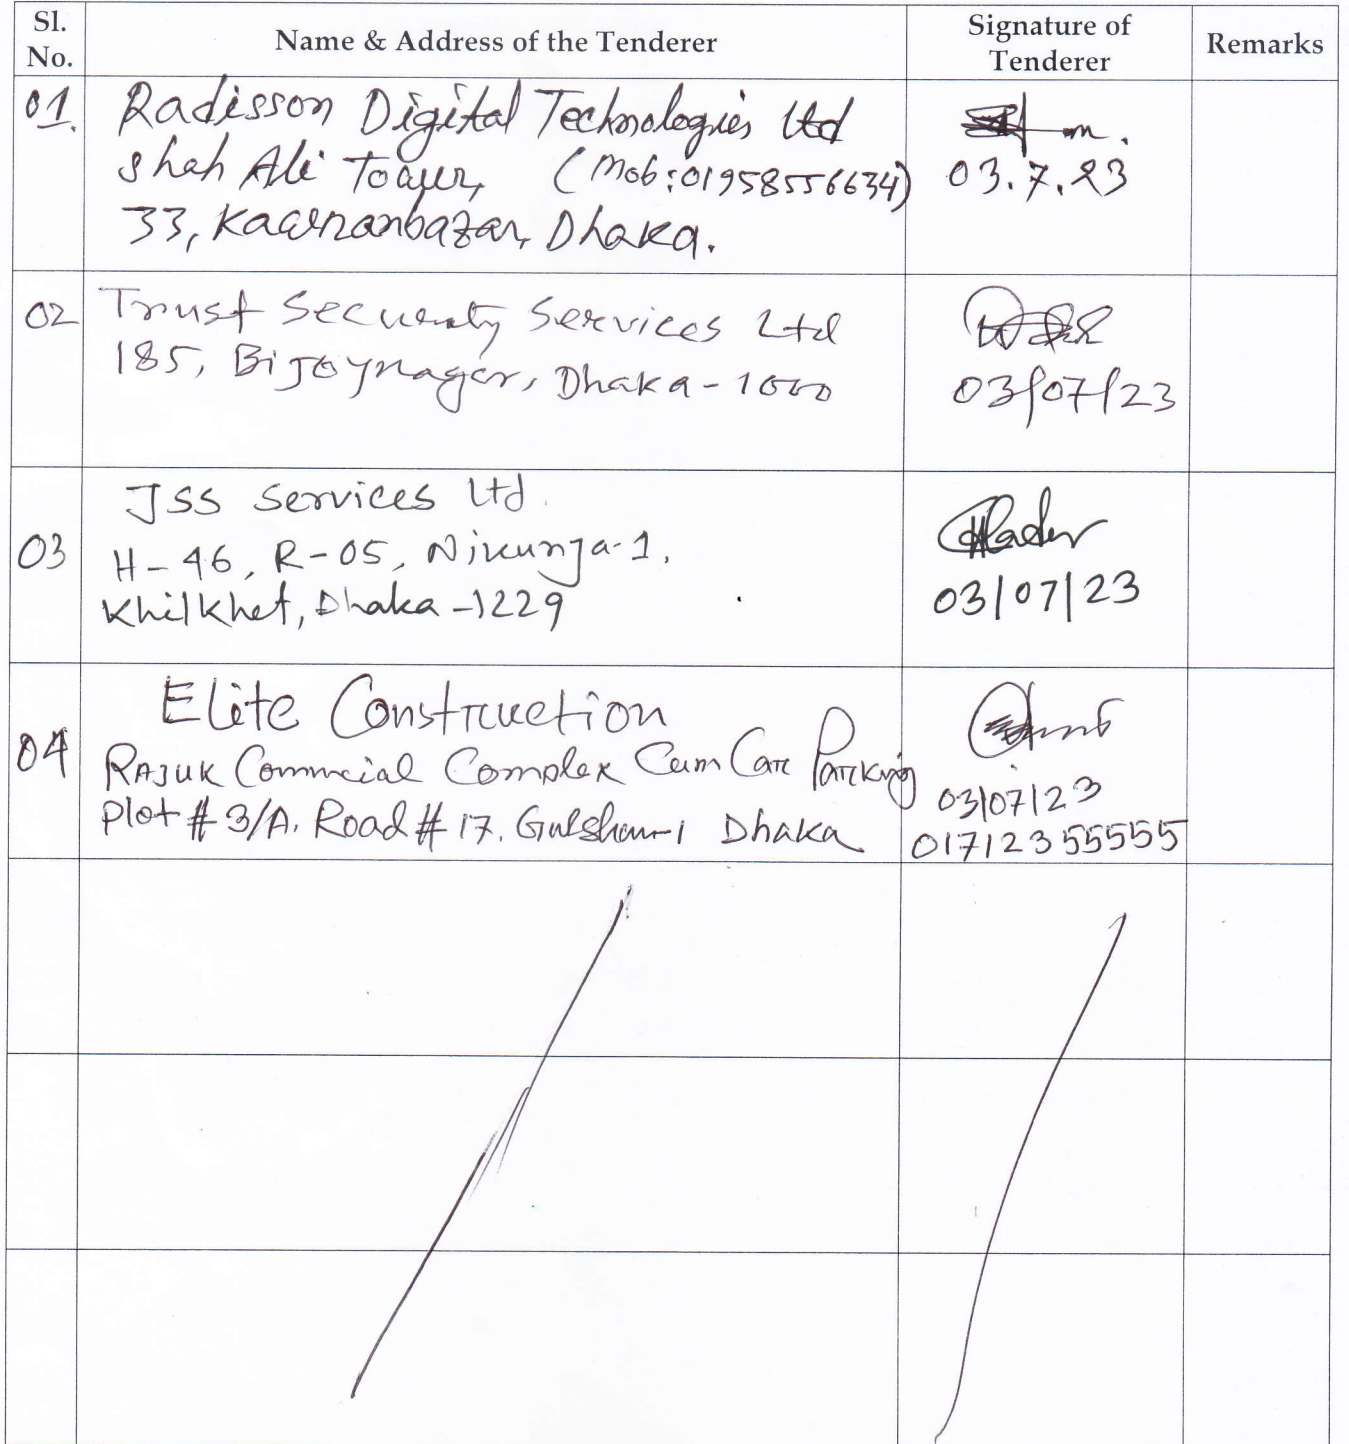 Sl. No.
Name & Address of the Tenderer
Signature of Tenderer
Remarks
01.
Radisson Digital Technologies Ltd
Shah Ali Tower, (Mob: 01958556634)
33, Kawranbazar, Dhaka.
03.7.23
02
Trust Security Services Ltd
185, Bijoynagar, Dhaka-1000
03/07/23
03
JSS Services Ltd.
H-46, R-05, Nikunja-1,
Khilkhet, Dhaka-1229
03/07/23
04
Elite Construction
RAJUK Commcial Complex Cum Car Parking
Plot # 3/A. Road # 17. Gulshan-1 Dhaka
03/07/23
01712355555